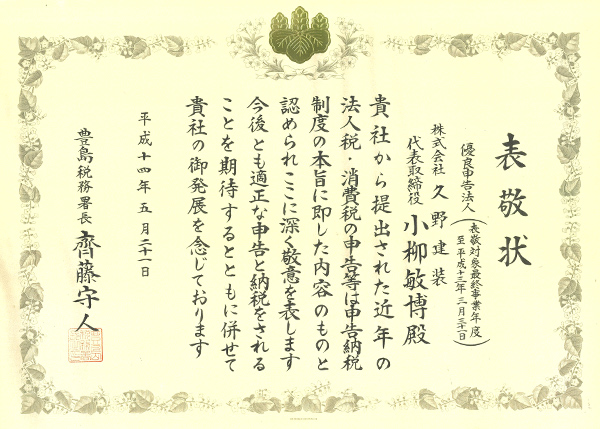 表敬状
優良申告法人
(表敬対象最終事業年度
至 平成十三年三月三十一日)
株式会社 久野建装
代表取締役 小柳敏博殿
貴社から提出された近年の
法人税・消費税の申告等は申告納税
制度の本旨に即した内容のものと
認められここに深く敬意を表します
今後とも適正な申告と納税をされる
ことを期待するとともに併せて
貴社の御発展を念じております
平成十四年五月二十一日
豊島税務署長 齊藤守人